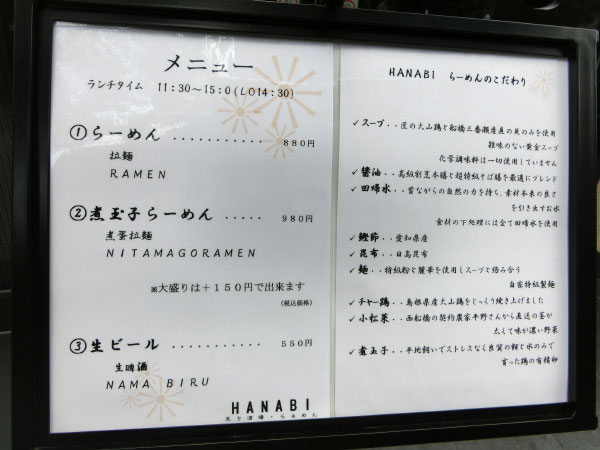 メニュー
ランチタイム 11:30～15:0(LO14:30)
①らーめん ........... 880円
拉麺
RAMEN
②煮玉子らーめん ..... 980円
煮蛋拉麺
NITAMAGORAMEN
※大盛りは＋150円で出来ます
(税込価格)
③生ビール ........... 550円
生啤酒
NAMA BIRU
HANABI
炙り酒場・らぁめん
HANABI らーめんのこだわり
✓スープ..匠の大山鶏と船橋三番瀬産直の貝のみを使用
雑味のない黄金スープ
化学調味料は一切使用していません
✓醤油..高級割烹本膳と超特級そば膳を最適にブレンド
✓回帰水..昔ながらの自然の力を持ち、素材本来の良さ
を引き出すお水
食材の下処理には全て回帰水を使用
✓鰹節..愛知県産
✓昆布..日高昆布
✓麺..特級粉と麗華を使用しスープと絡み合う
自家特級製麺
✓チャー鶏..島根県産大山鶏をじっくり焼き上げました
✓小松菜..西船橋の契約農家平野さんから直送の茎が
太くて味が濃い野菜
✓煮玉子..平地飼いでストレスなく良質の餌と水のみで
育った鶏の有精卵